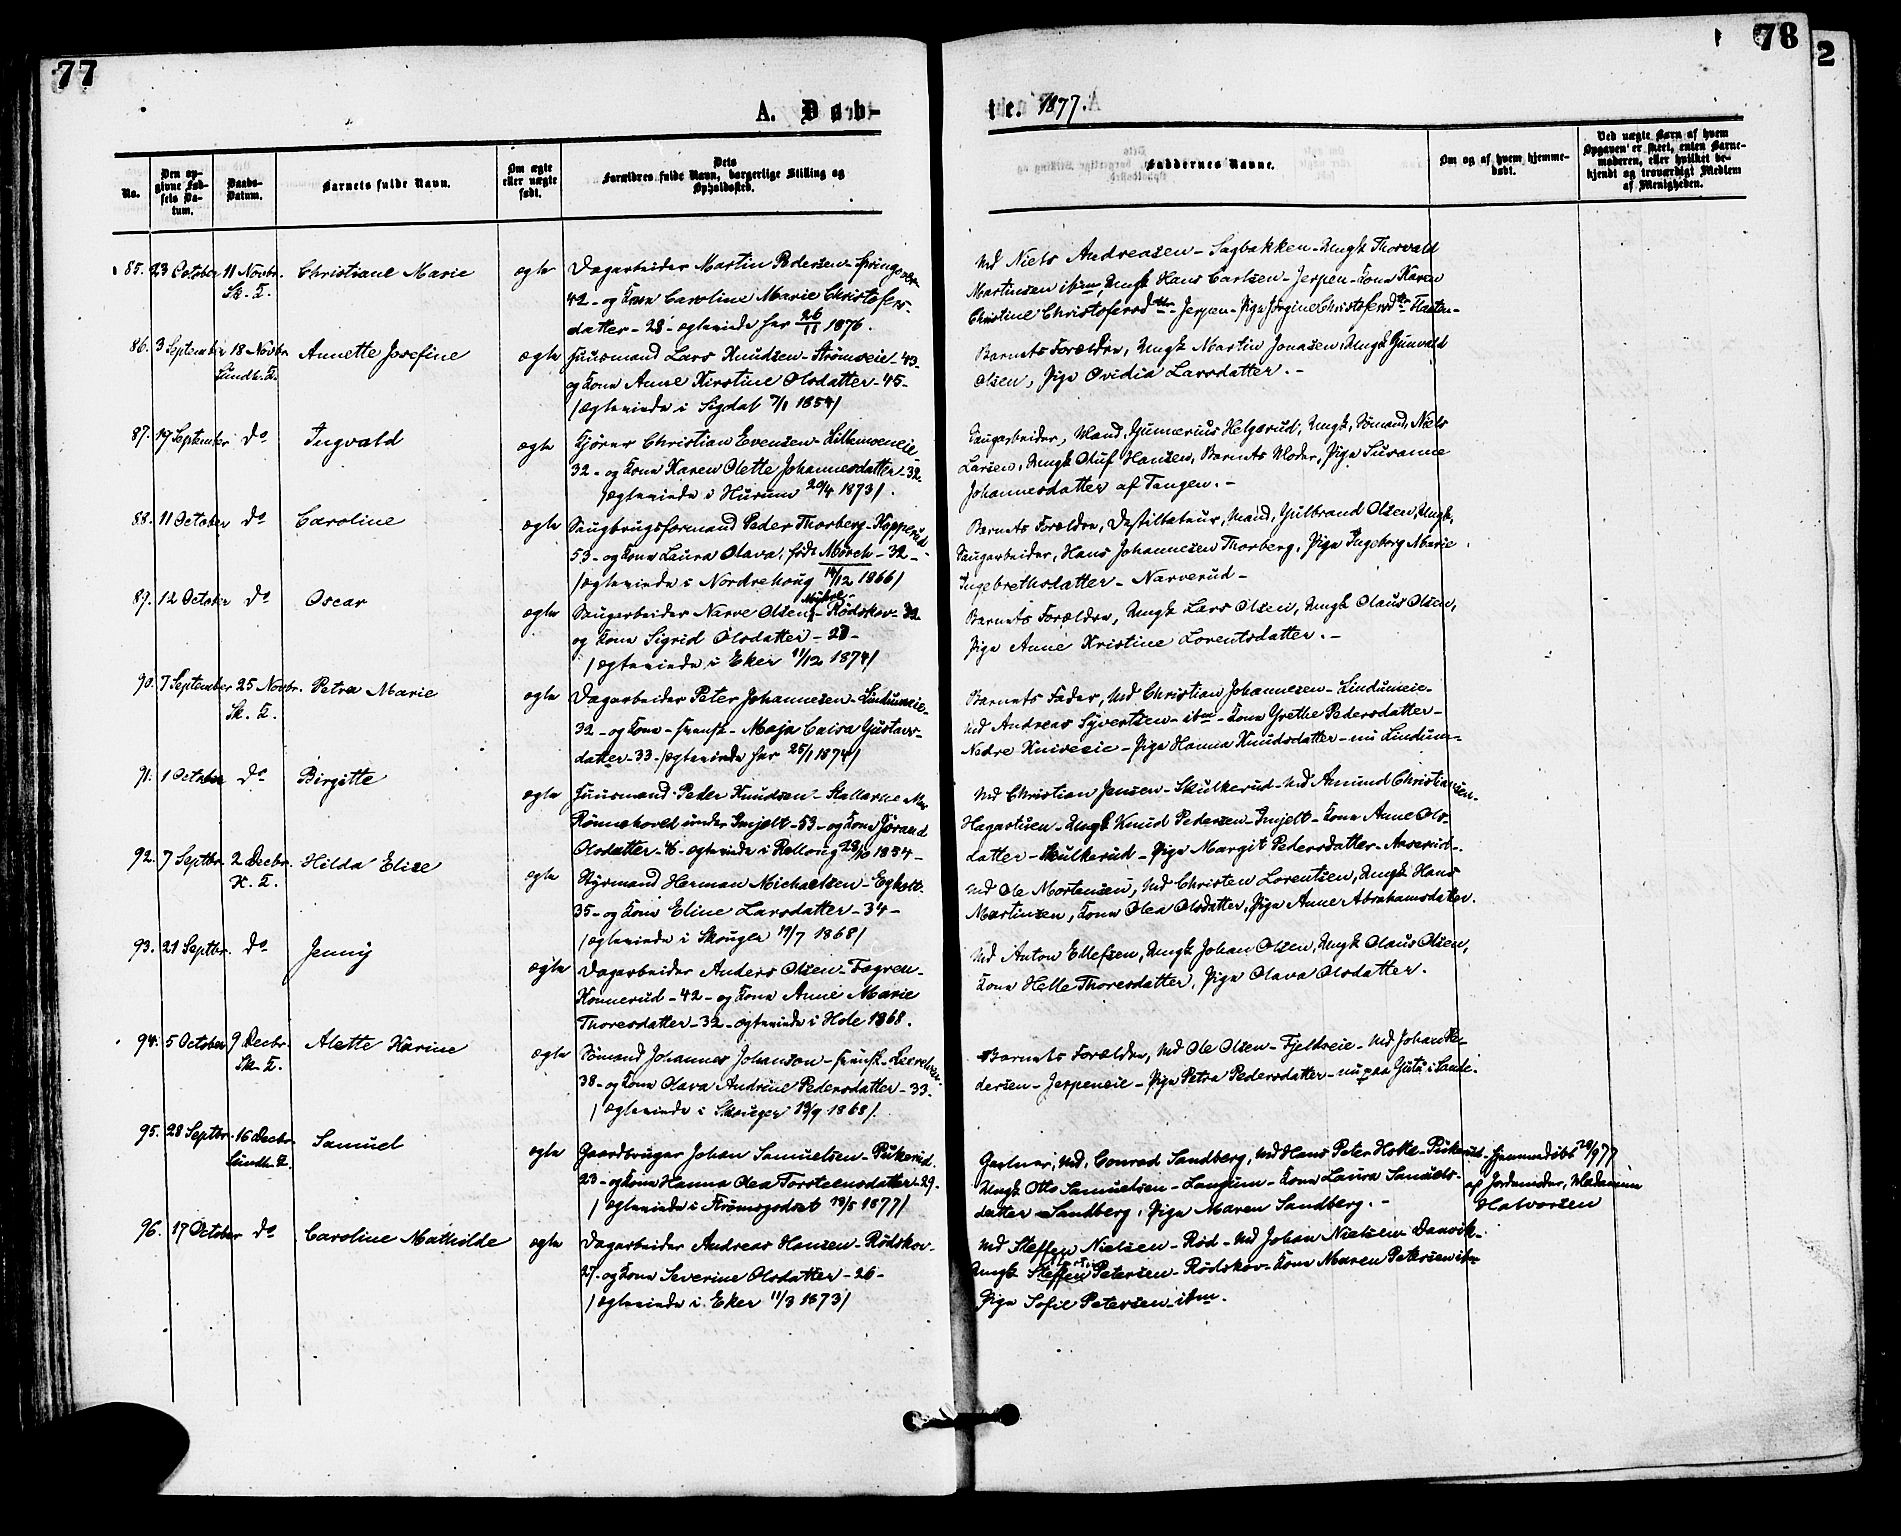 77
78
2
A. Døb-
te. 1877.
No.
Den opgivne Fødsels Datum.
Daabs-Datum.
Barnets fulde Navn.
Om ægte eller uægte født.
Dets Forældres fulde Navn, borgerlige Stilling og Opholdssted.
Faddernes Navne.
Om og af hvem hjemmedøbt.
Ved uægte Barn af hvem Opgaven er skeet, enten Barnemoderen, eller hvilket bekjendt og troværdigt Medlem af Menigheden.
85. 23 October 11 Novbr. Christiane Marie ægte Dagarbeider Martin Pedersen
Sk. K. 42 - og Kone Caroline Marie Christofers-
datter - 28 - ægteviede her 26/11 1876.
Md Niels Andreasen - Sagbakken - Ungk Thorvald
Martinsen ibm, Ungk Hans Carlsen - Jerpen - Kone Karen
Christine Christofersdtr - Jerpen - Pige Jørgine Christofersdtr
86. 3 September 18 Novbr. Annette Josefine ægte Huusmand Lars Knudsen - Strømseie - 43 -
Lundh. K. og Kone Anne Kirstine Olsdatter - 45 -
/ægteviede i Sigdal 7/1 1854/
Barnets Forældre, Ungk Martin Jonasen, Ungk Gunvald
Olsen, Pige Ovidia Larsdatter. -
87. 17 September do Ingvald ægte Kjører Christian Evensen - Lillemoeneie -
32 - og Kone Karen Olette Johannesdatter - 32 -
/ægteviede i Hurum 20/4 1873/.
Saugarbeider, Mand, Gunnerius Helgerud, Ungk, Sømand, Niels
Larsen, Ungk Oluf Hansen, Barnets Moder, Pige Susanne
Johannesdatter af Tangen. -
88. 11 October do Caroline ægte Saugbrugsformand Peder Thorberg - Kopperud
53 - og Kone Laura Olava, født Mørch - 32 -
/ægteviede i Nordrehoug 14/12 1866/
Barnets Forældre, Destillateur, Mand, Gulbrand Olsen, Ungk,
Saugarbeider, Hans Johannesen Thorberg, Pige Ingeborg Marie
Ingebrethsdatter - Narverud -
89. 12 October do Oscar ægte Saugarbeider Narve Olsen - Rødskov - 32
og Kone Sigrid Olsdatter - 28 -
/ægteviede i Eker 11/12 1874/
Barnets Forældre, Ungk Lars Olsen, Ungk Olaus Olsen,
Pige Anne Kristine Lorentsdatter. -
90. 7 September 25 Novbr. Petra Marie ægte Dagarbeider Peter Johannesen - Lindumeie -
Sk. K. 32 - og Kone - svensk - Maja Caisa Gustavs-
datter - 33 - /ægteviede her 25/1 1874/
Barnets Fader, Md Christian Johannesen - Lindumeie -
Md Andreas Syvertsen - ibm - Kone Grethe Pedersdatter -
Nedre Kniveeie - Pige Hanna Knudsdatter - nu Lindum -
91. 1 October do Birgitte ægte Huusmand Peder Knudsen
Rønnehoved under Gmjelt - 53 - og Kone Jørand
Olsdatter - 46 - ægteviede i Rolloug 29/10 1854 -
Md Christian Jensen - Skulkerud - Md Amund Christiansen -
Ungk Knud Pedersen - Kone Anne Ols-
datter - Skulkerud - Pige Margit Pedersdatter - Aaserud -
92. 7 Septbr. 2 Decbr. Hilda Elise ægte Styrmand Herman Michaelsen - Egholt -
K. K. 35 - og Kone Eline Larsdatter - 34 -
/ægteviede i Skouger 19/7 1868/
Md Ole Mortensen, Md Christen Lorentsen, Ungk Hans
Martinsen, Kone Olea Olsdatter, Pige Anne Abrahamsdatter.
93. 21 Septbr. do Jenny ægte Dagarbeider Anders Olsen - Fagren -
Konnerud - 42 - og Kone Anne Marie
Thoresdatter - 32 - ægteviede i Hole 1868.
Md Anton Ellefsen, Ungk Johan Olsen, Ungk Olaus Olsen,
Kone Helle Thoresdatter, Pige Olava Olsdatter.
94. 5 October 9 Decbr. Alette Karine ægte Sømand Johannes Johanson - svensk
Sk. K. 38 - og Kone Olava Andrine Pedersdatter - 33.
/ægteviede i Skouger 13/9 1868/.
Barnets Forældre, Md Ole Olsen - Fjeldseie - Md Johan Pe-
dersen - Jerpeneie - Pige Petra Pedersdatter
95. 28 Septbr. 16 Decbr. Samuel ægte Gaardbruger Johan Samuelsen - Pukerud.
Lundh. K. 23 - og Kone Hanna Olea Torsteensdatter - 29 -
/ægteviede i Strømsgodset 19/5 1877/
Gartner, Md, Conrad Sandberg, Md Hans Peter Holte - Pukerud - hjemmedøbt 28/9 77
Ungk Otto Samuelsen - Langum - Kone Laura Samuels- af Jordemoder, Madamme
datter - Sandberg, Pige Maren Sandberg. - Halvorsen
96. 17 October do Caroline Mathilde ægte Dagarbeider Andreas Hansen - Rødskov -
27 - og Kone Severine Olsdatter - 26 -
/ægteviede i Eker 11/3 1873/
Md Steffen Nielsen - Rød - Md Johan Nielsen - Danvik -
Ungk Steffen Petersen - Rødskov - Kone Maren Petersen ibm
Pige Sofie Petersen - ibm.